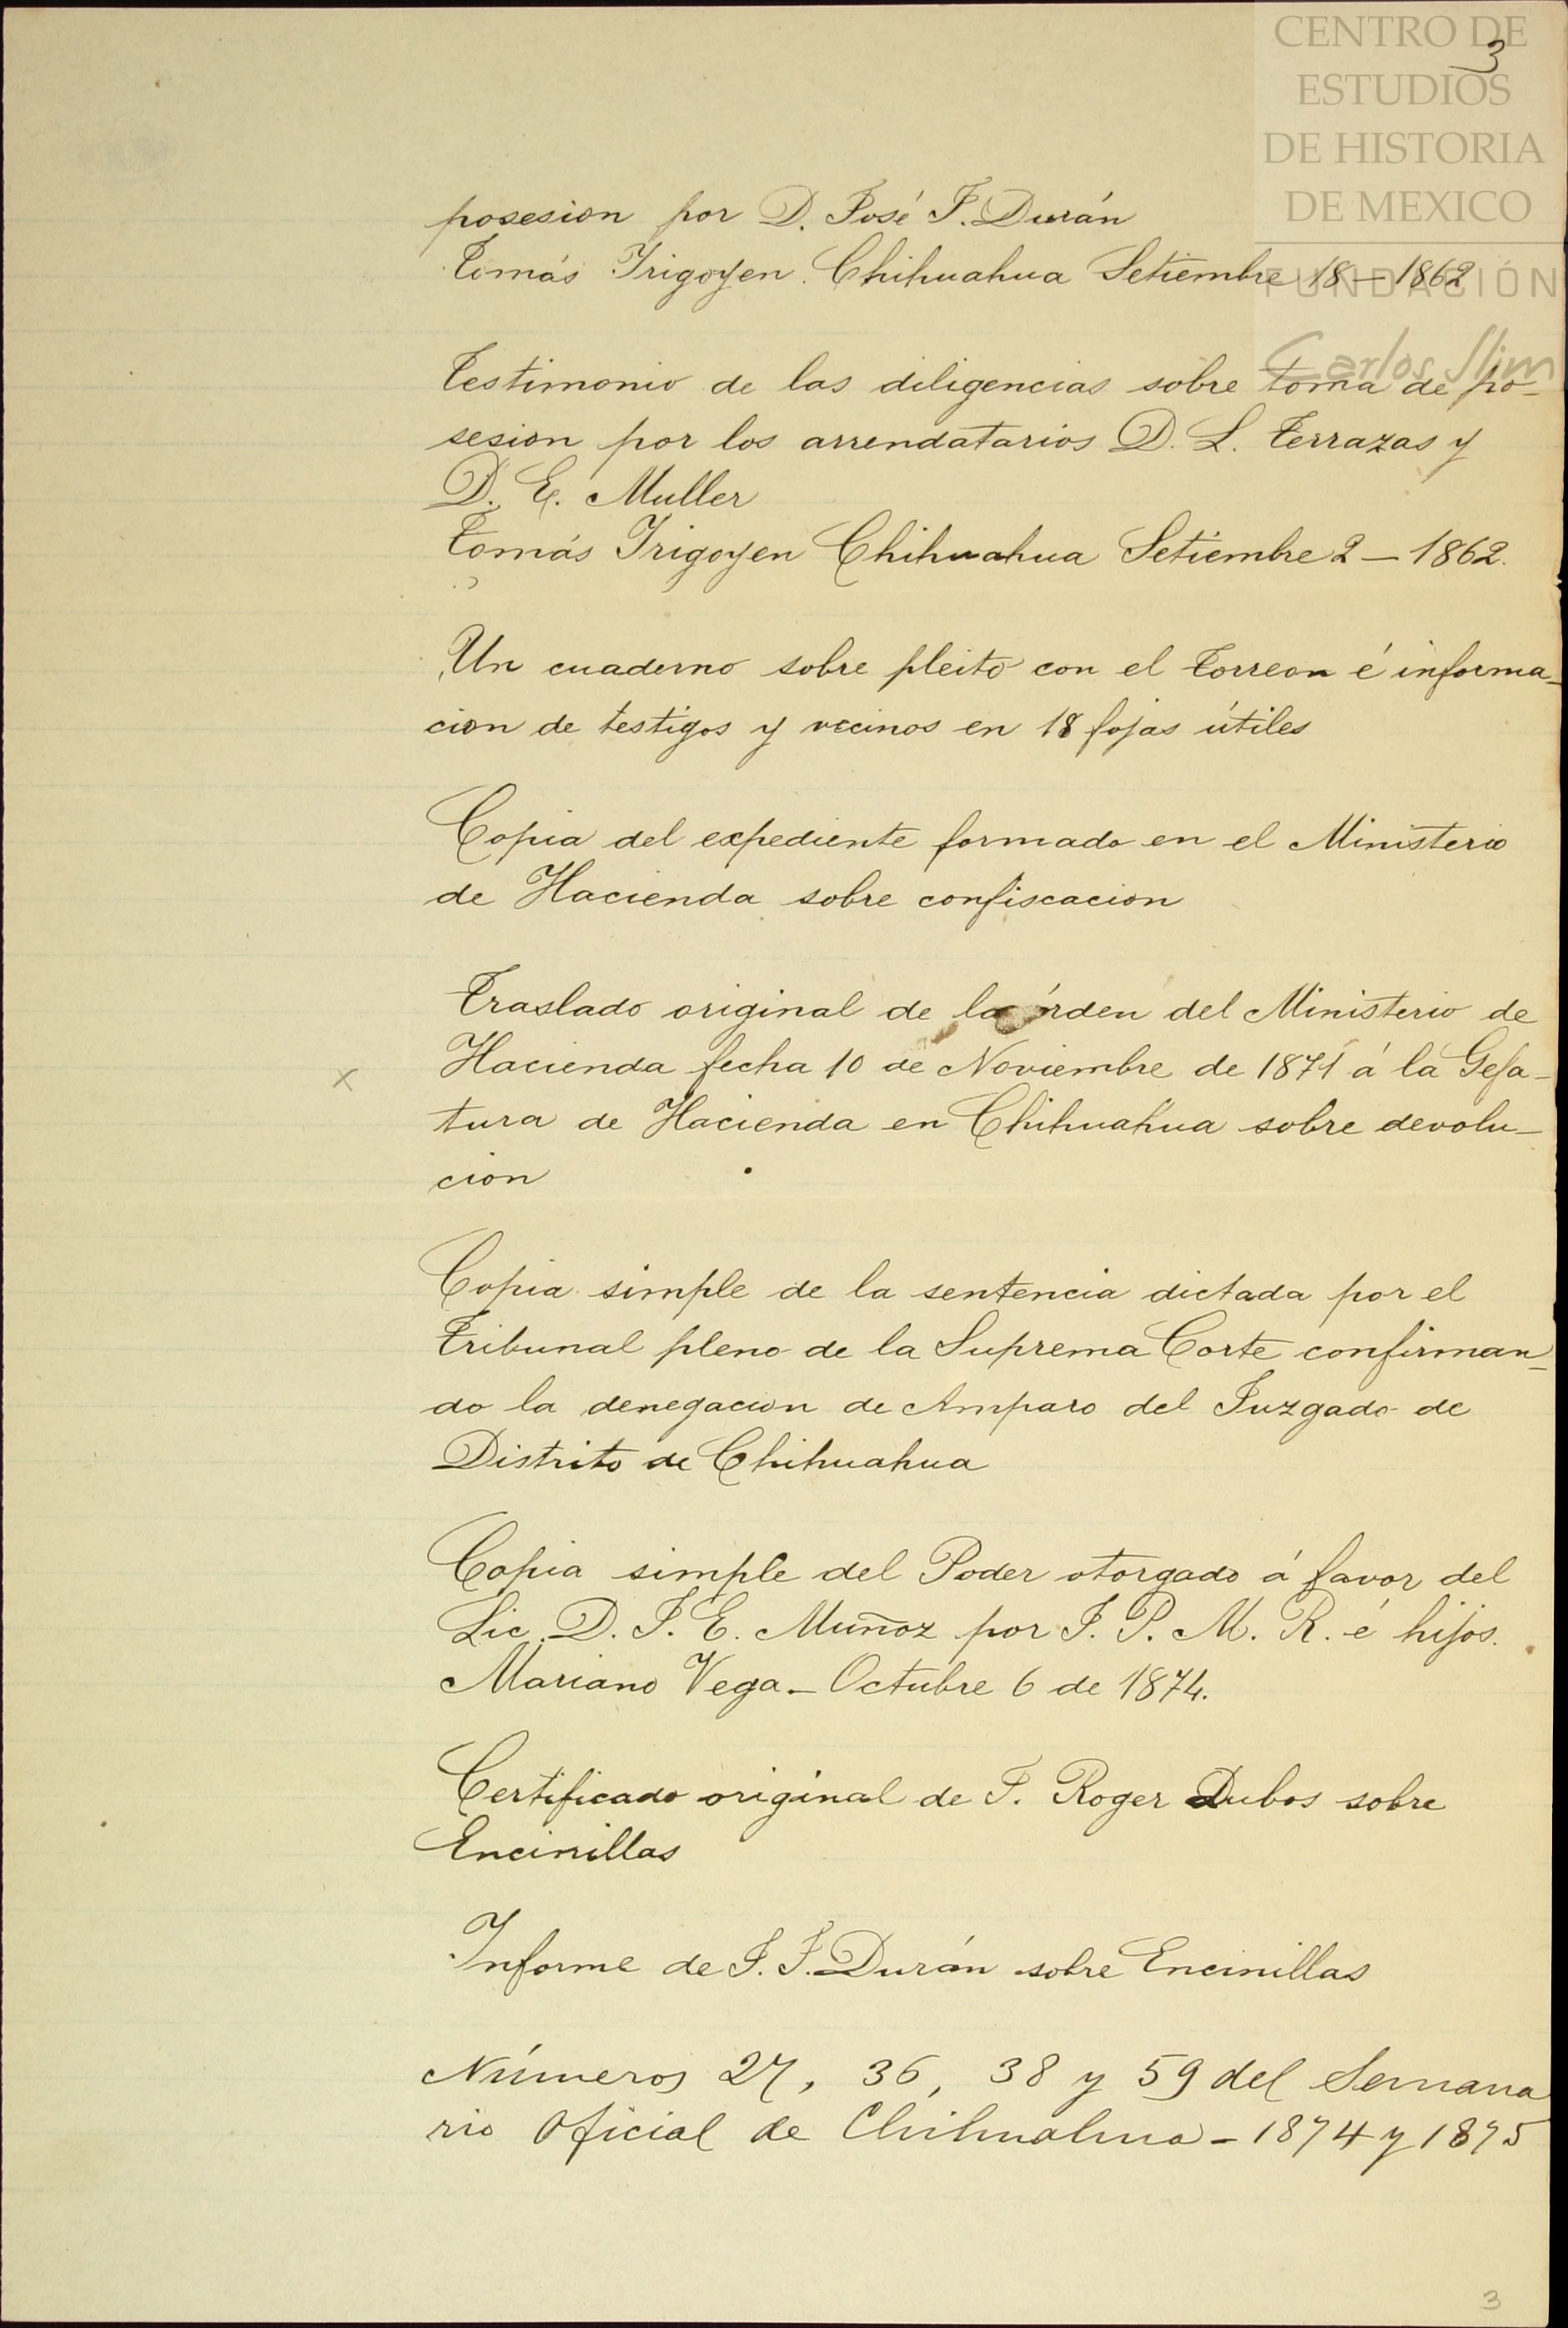 CENTRO DE
ESTUDIOS
DE HISTORIA
DE MEXICO
FUNDACIÓN
Carlos Slim
3
posesion por D. José F. Durán
Tomás Irigoyen. Chihuahua Setiembre 18 — 1862
Testimonio de las diligencias sobre toma de po-
sesion por los arrendatarios D. L. Terrazas y
D. E. Muller
Tomás Irigoyen Chihuahua Setiembre 2 — 1862.
Un cuaderno sobre pleito con el Torreon é informa-
cion de testigos y vecinos en 18 fojas útiles
Copia del expediente formado en el Ministerio
de Hacienda sobre confiscacion
Traslado original de la órden del Ministerio de
x Hacienda fecha 10 de Noviembre de 1871 á la Gefa-
tura de Hacienda en Chihuahua sobre devolu-
cion
Copia simple de la sentencia dictada por el
Tribunal pleno de la Suprema Corte confirman-
do la denegacion de Amparo del Juzgado de
Distrito de Chihuahua
Copia simple del Poder otorgado á favor del
Lic. D. J. E. Muñoz por J. P. M. R. é hijos.
Mariano Vega - Octubre 6 de 1874.
Certificado original de F. Roger Dubos sobre
Encinillas
Informe de J. F. Durán sobre Encinillas
Números 27, 36, 38 y 59 del Semana
rio Oficial de Chihuahua - 1874 y 1875
3